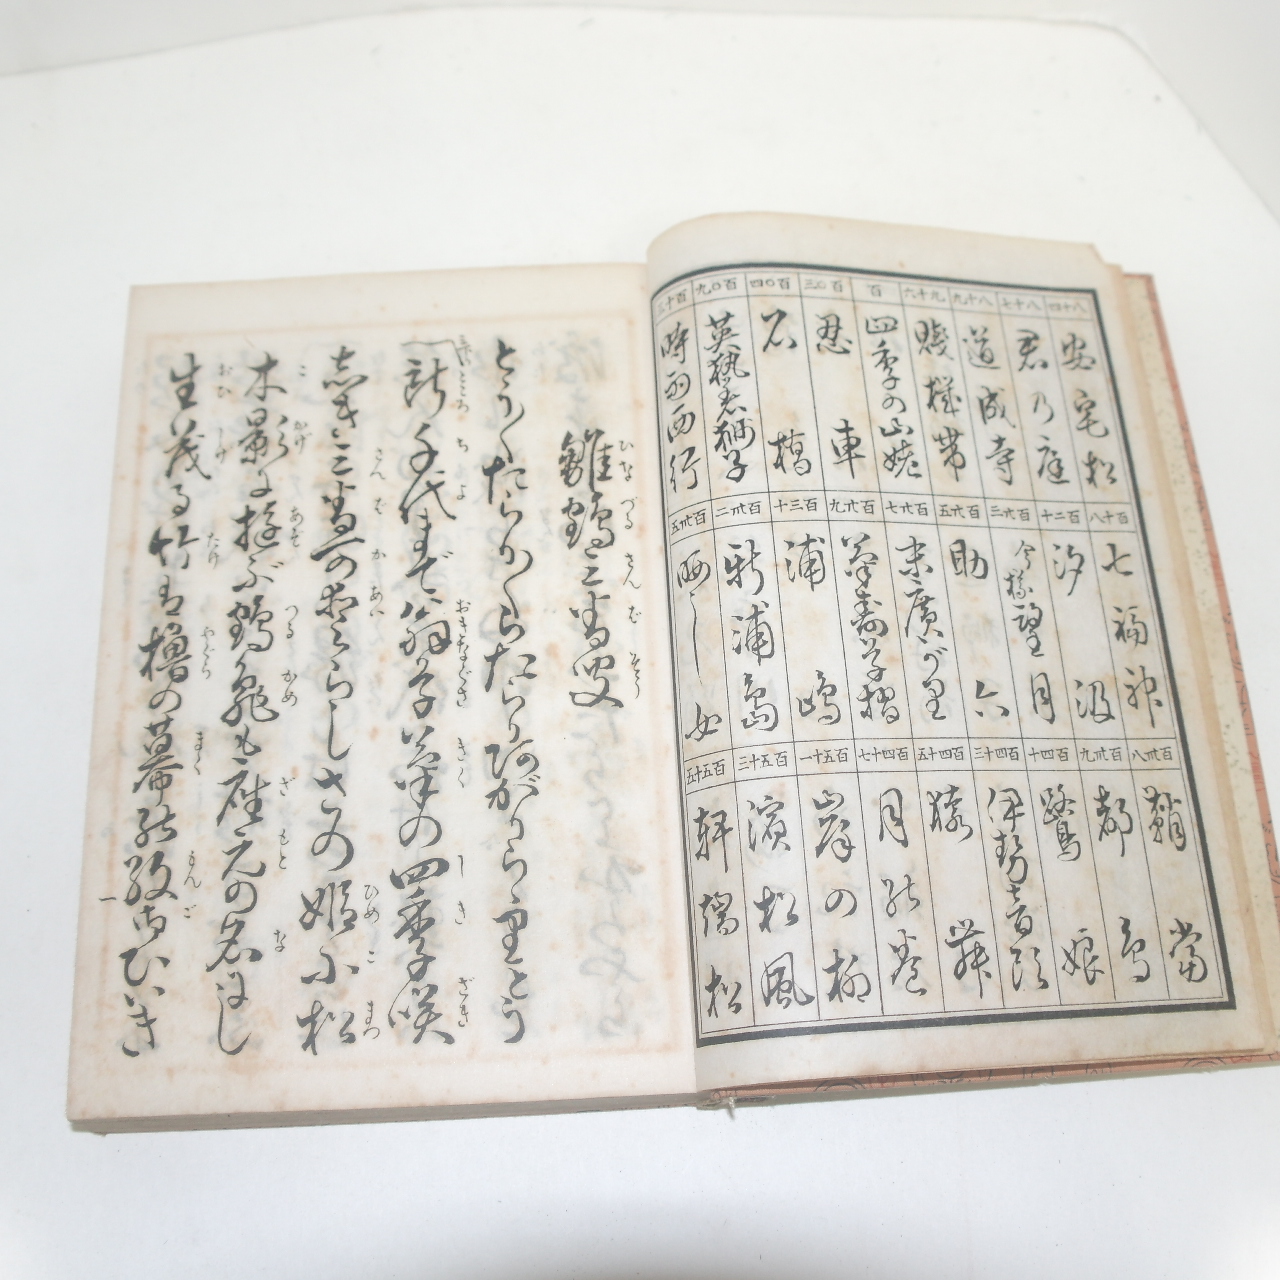 八十四 安宅松
八十七 君乃庭
八十九 道成寺
九十六 賤機帯
百 四季の山姥
百〇三 忍車
百〇四 石橋
百〇九 英執着獅子
百十三 時雨西行
百十八 七福神
百二十 汐汲
百廿三 今様望月
百廿五 助六
百廿七 末廣がり
百廿九 菊壽草摺
百三十 浦嶋
百卅二 新浦島
百卅五 晒し女
百卅八 鞘當
百卅九 都鳥
百四十 鷺娘
百四十三 伊勢音頭
百四十五 猿舞
百四十七 月の巻
百五十一 岸の柳
百五十三 濱松風
百五十五 鞍馬
雛鶴三番叟
とう〳〵たらり〳〵らたらりあがりらゝりとう
所千代まで翁草菊の四季咲
志き三番
さの姫小松
木影に遊ぶ鶴亀も座元の名にし
生茂る竹は櫓の幕の紋御ひいき
一